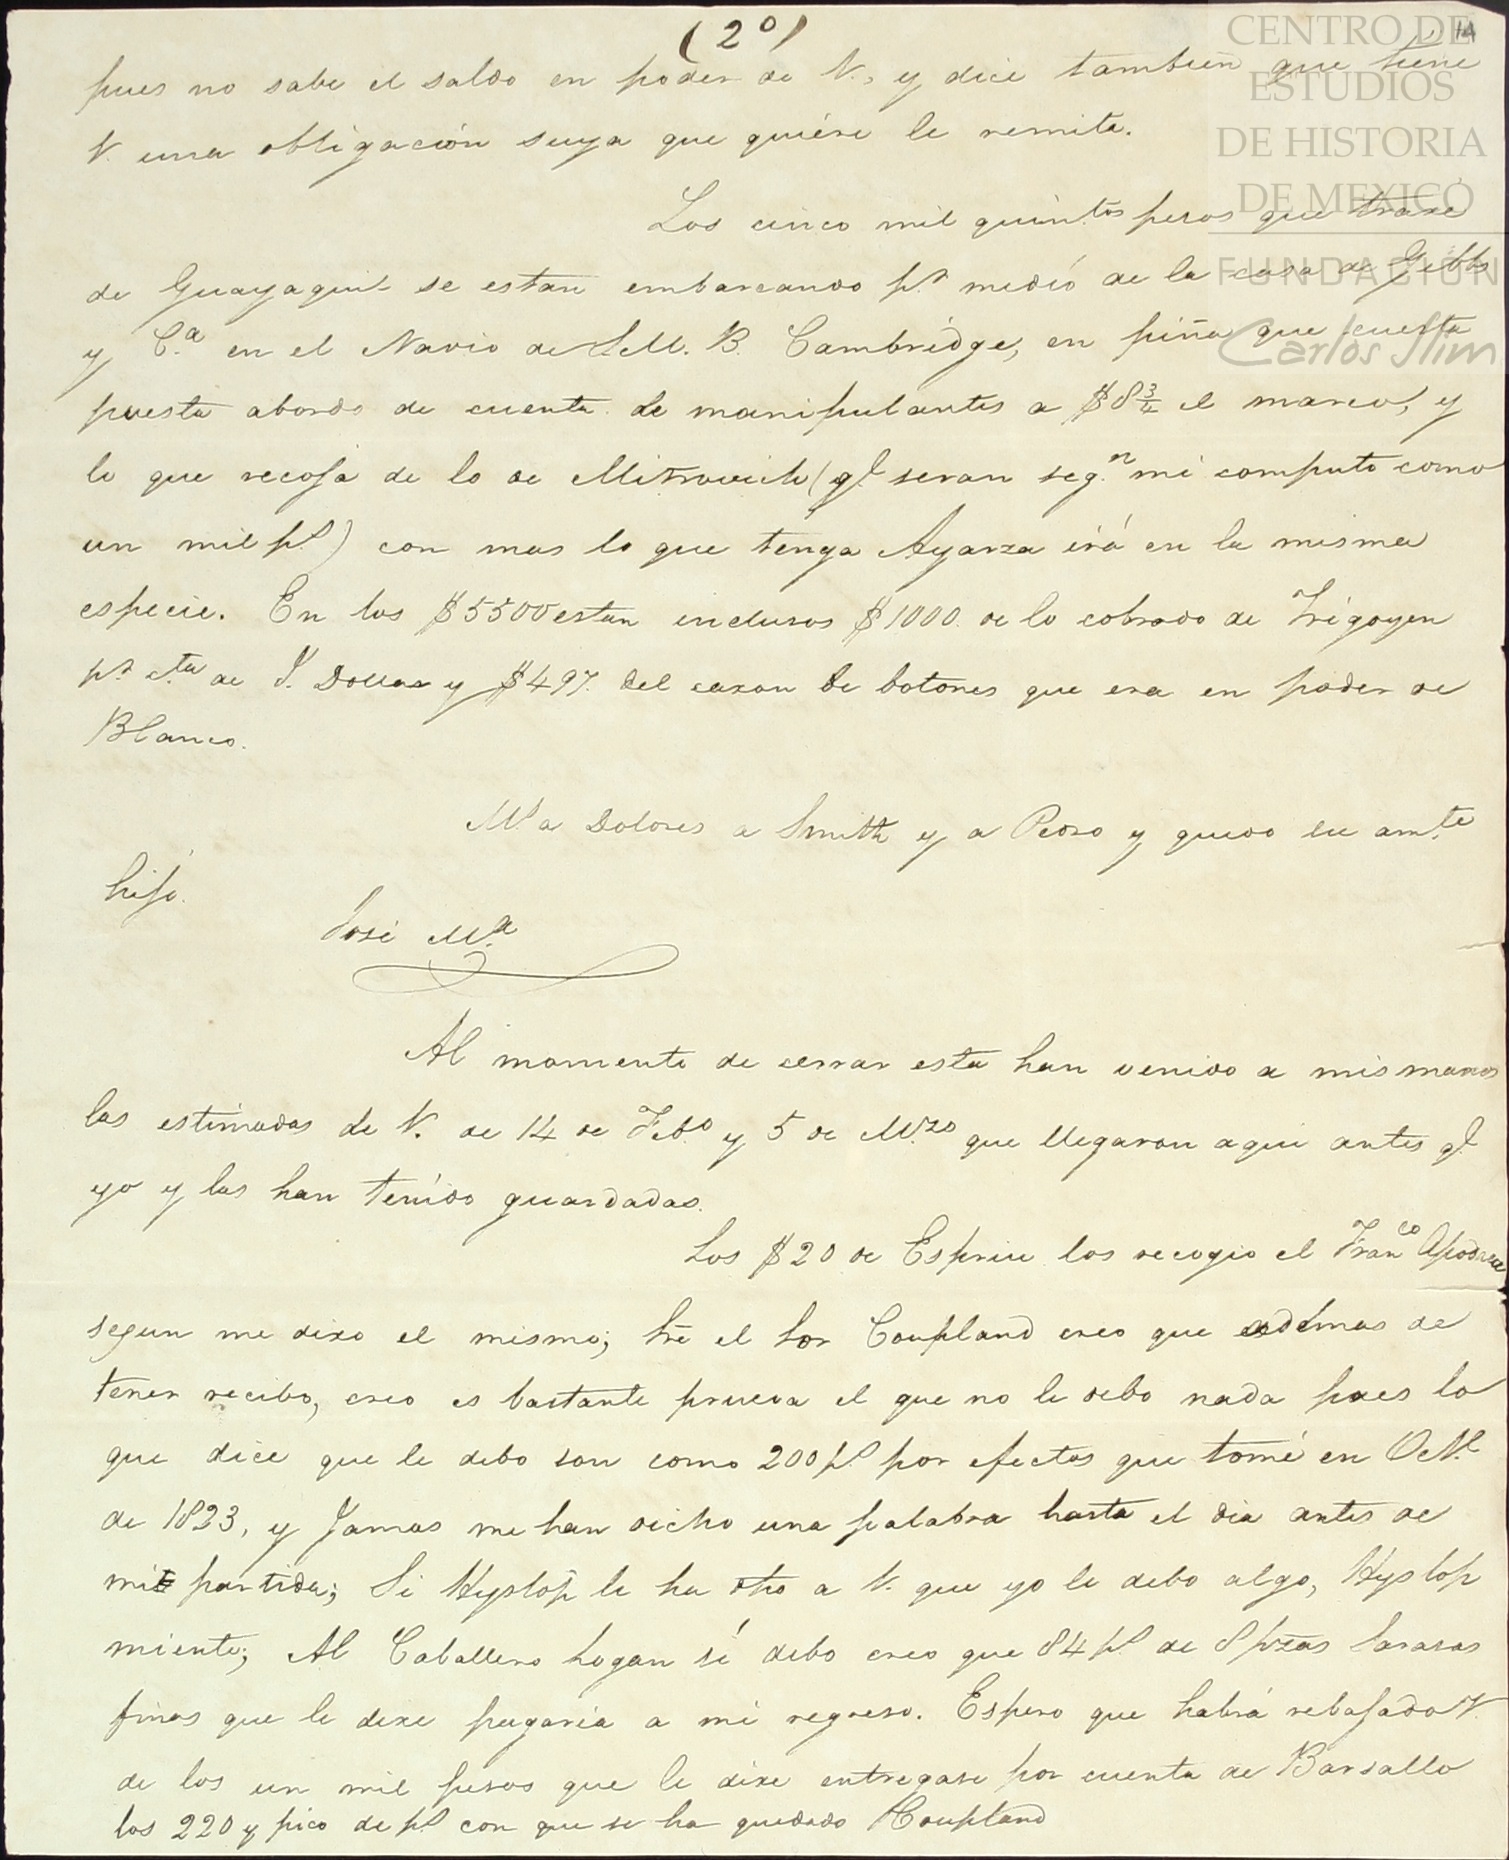 (2º)
14
CENTRO DE
ESTUDIOS
DE HISTORIA
DE MEXICO
FUNDACIÓN
Carlos Slim
pues no sabe el saldo en poder de V., y dice tambien que tiene
V. una obligación suya que quiére le remita.
Los cinco mil quintos pesos que traxe
de Guayaquil se estan embarcando pr. medio de la casa de Gibbs
y C.a en el Navio de S.M.B. Cambridge, en piña que cuesta
puesta abordo de cuenta de manipulantes a $8 3/4 el marco, y
lo que recoja de lo de Mitrovich (ql. seran seg.n mi computo como
un mil ps.) con mas lo que tenga Ayarza irá en la misma
especie. En los $5500 estan inclusos $1000. de lo cobrado de Irigoyen
pr. c.ta de J. Dollas y $497. del caxon de botones que era en poder de
Blanco.
Ms. a Dolores a Smith y a Pedro y quedo su am.te
hijo.
José M.a
Al momento de cerrar esta han venido a mis manos
las estimadas de V. de 14 de Feb.o y 5 de M.zo que llegaron aqui antes ql.
yo y las han tenido guardadas.
Los $20 de Espriu los recogio el Fran.co Apodaca
segun me dixo el mismo; Sre el Sor Coupland creo que ademas de
tener recibo, creo es bastante prueva el que no le debo nada pues lo
que dice que le debo son como 200 ps. por efectos que tomé en Oct.e
de 1823, y Jamas me han dicho una palabra hasta el dia antes de
mi partida; Si Hyslop le ha dho a V. que yo le debo algo, Hyslop
miente; Al Caballero hogan sí debo creo que 84 ps. de 8 pzas Sarasas
finas que le dixe pagaria a mi regreso. Espero que habrá rebajado V.
de los un mil pesos que le dixe entregase por cuenta de Barsallo
los 220 y pico de ps. con que se ha quedado Coupland